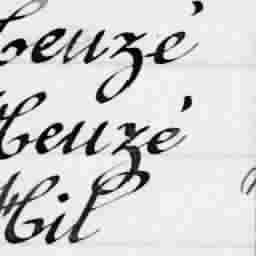 Heuzé
Heuzé
Hil